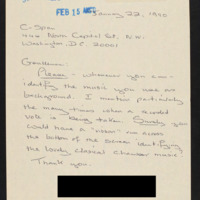 FEB 15 1990
January 22, 1990
C-Span
444 North Capitol St. N.W.
Washington D.C. 20001
Gentlemen:
Please - whenever you can -
identify the music you use as
background. I wonder particularly
the many times when a recorded
vote is being taken. Surely you
could have a "ribbon" run across
the bottom of the screen identifying
the lovely classical chamber music.
Thank you.